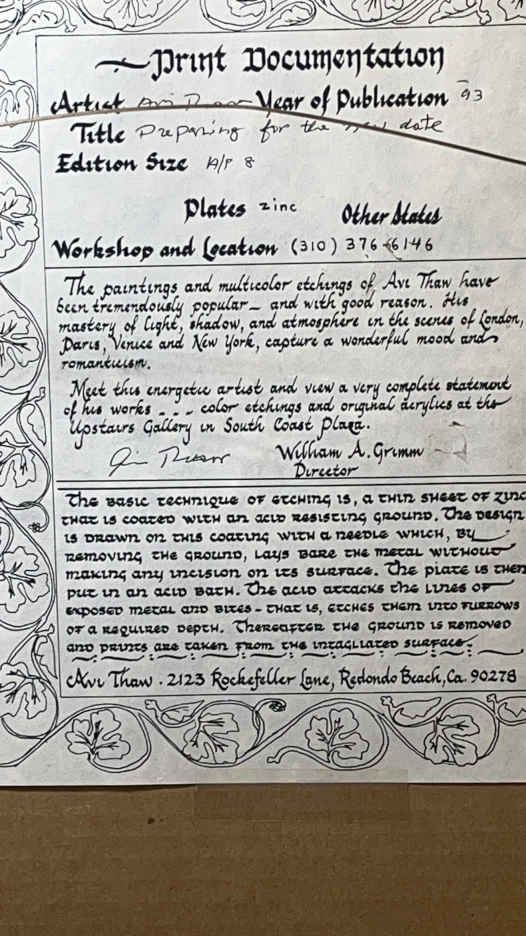 Print Documentation
Artist Avi Thaw Year of Publication 93
Title Preparing for the new date
Edition Size A/P 8
Plates zinc Other States
Workshop and Location (310) 376-6146
The paintings and multicolor etchings of Avi Thaw have
been tremendously popular - and with good reason. His
mastery of light, shadow, and atmosphere in the scenes of London,
Paris, Venice and New York, capture a wonderful mood and
romanticism.
Meet this energetic artist and view a very complete statement
of his works . . . color etchings and original acrylics at the
Upstairs Gallery in South Coast Plaza.
Avi Thaw William A. Grimm
Director
The basic technique of etching is, a thin sheet of zinc
that is coated with an acid resisting ground. The design
is drawn on this coating with a needle which, by
removing the ground, lays bare the metal without
making any incision on its surface. The plate is then
put in an acid bath. The acid attacks the lines of
exposed metal and bites - that is, etches them into furrows
of a required depth. Thereafter the ground is removed
and prints are taken from the intagliated surface.
Avi Thaw . 2123 Rockefeller Lane, Redondo Beach, Ca. 90278